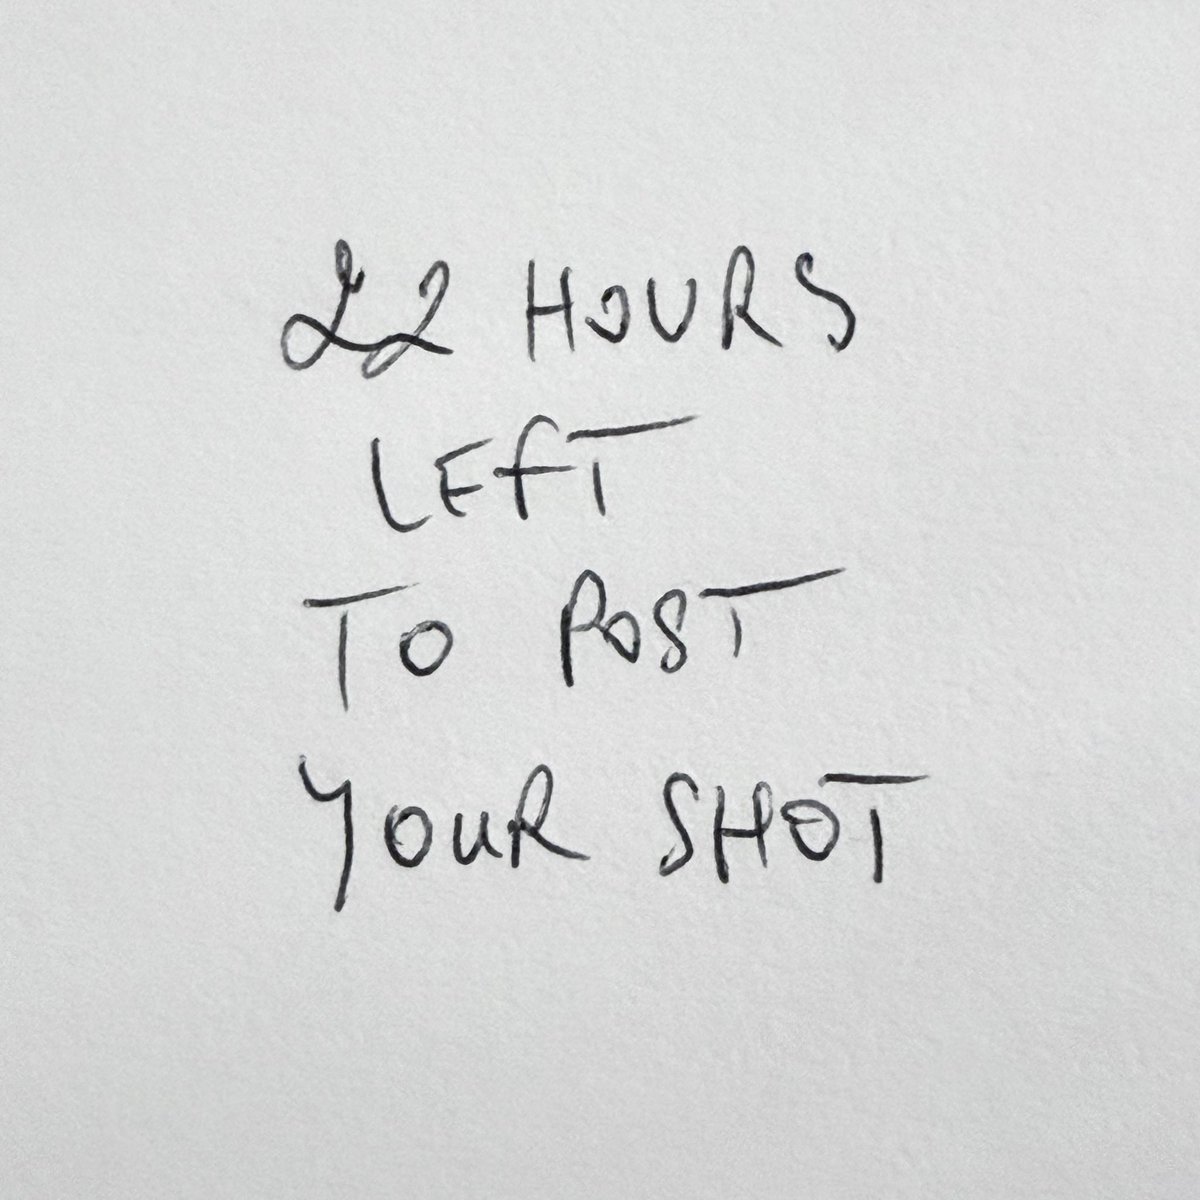 22 HOURS
LEFT
TO POST
YOUR SHOT